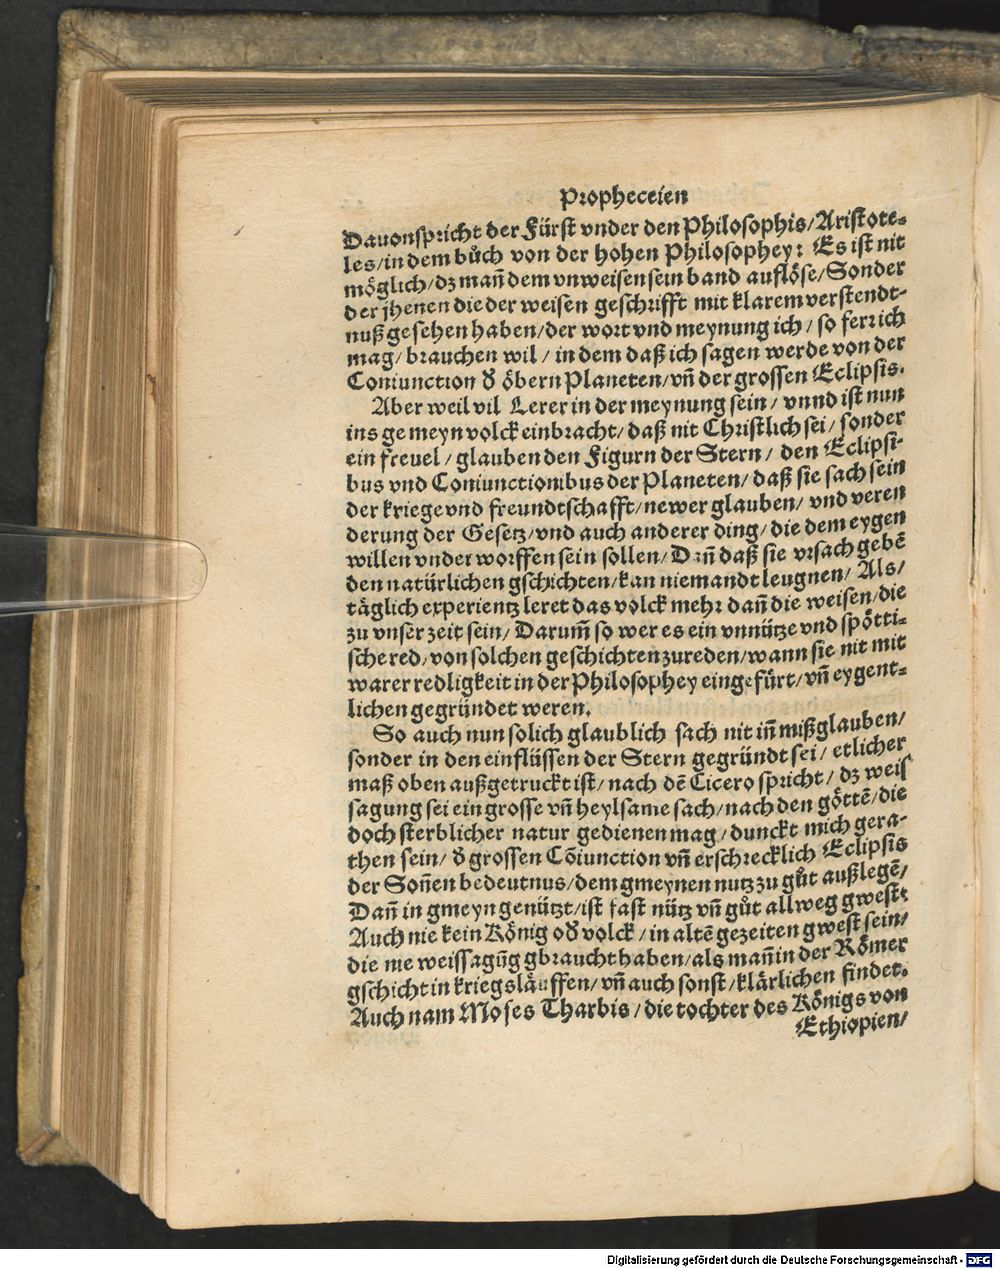 Propheceien
Dauon spricht der Fürst vnder den Philosophis/Aristote-
les/in dem bůch von der hohen Philosophey: Es ist nit
möglich/dz mañ dem vnweisen sein band auflöse/Sonder
der jhenen die der weisen geschrifft mit klarem verstendt-
nuß gesehen haben/der wort vnd meynung ich/so ferr ich
mag/brauchen wil/in dem daß ich sagen werde von der
Coniunction d̕ öbern Planeten/vñ der grossen Eclipsis.
Aber weil vil Lerer in der meynung sein/vnnd ist nun
ins gemeyn volck einbracht/daß nit Christlich sei/sonder
ein freuel/glauben den Figurn der Stern/den Eclipsi-
bus vnd Coniunctionibus der Planeten/daß sie sach sein
der kriege vnd freundtschafft/newer glauben/vnd veren
derung der Gesetz/vnd auch anderer ding/die dem eygen
willen vnder worffen sein sollen/Dañ daß sie vrsach gebē
den natürlichen gschichten/kan niemandt leugnen/Als/
täglich experientz leret das volck mehr dañ die weisen/die
zu vnser zeit sein/Darum̄ so wer es ein vnnütze vnd spötti-
sche red/von solchen geschichten zureden/wann sie nit mit
warer redligkeit in der Philosophey eingefürt/vñ eygent-
lichen gegründet weren.
So auch nun solich glaublich sach nit iñ mißglauben/
sonder in den einflüssen der Stern gegründt sei/etlicher
maß oben außgetruckt ist/nach dē Cicero spricht/dz weis
sagung sei ein grosse vñ heylsame sach/nach den göttē/die
doch sterblicher natur gedienen mag/dunckt mich gera-
then sein/d̕ grossen Cōiunction vñ erschrecklich Eclipsis
der Soñen bedeutnus/dem gmeynen nutz zu gůt außlegē/
Dañ in gmeyn genützt/ist fast nütz vñ gůt allweg gwest:
Auch nie kein König od̕ volck/in altē gezeiten gwest sein/
die nie weissagūg gbraucht haben/als mañ in der Römer
gschicht in kriegsläuffen/vñ auch sonst/klärlichen findet.
Auch nam Moses Tharbis/die tochter des Königs von
Ethiopien/
Digitalisierung gefördert durch die Deutsche Forschungsgemeinschaft - DFG